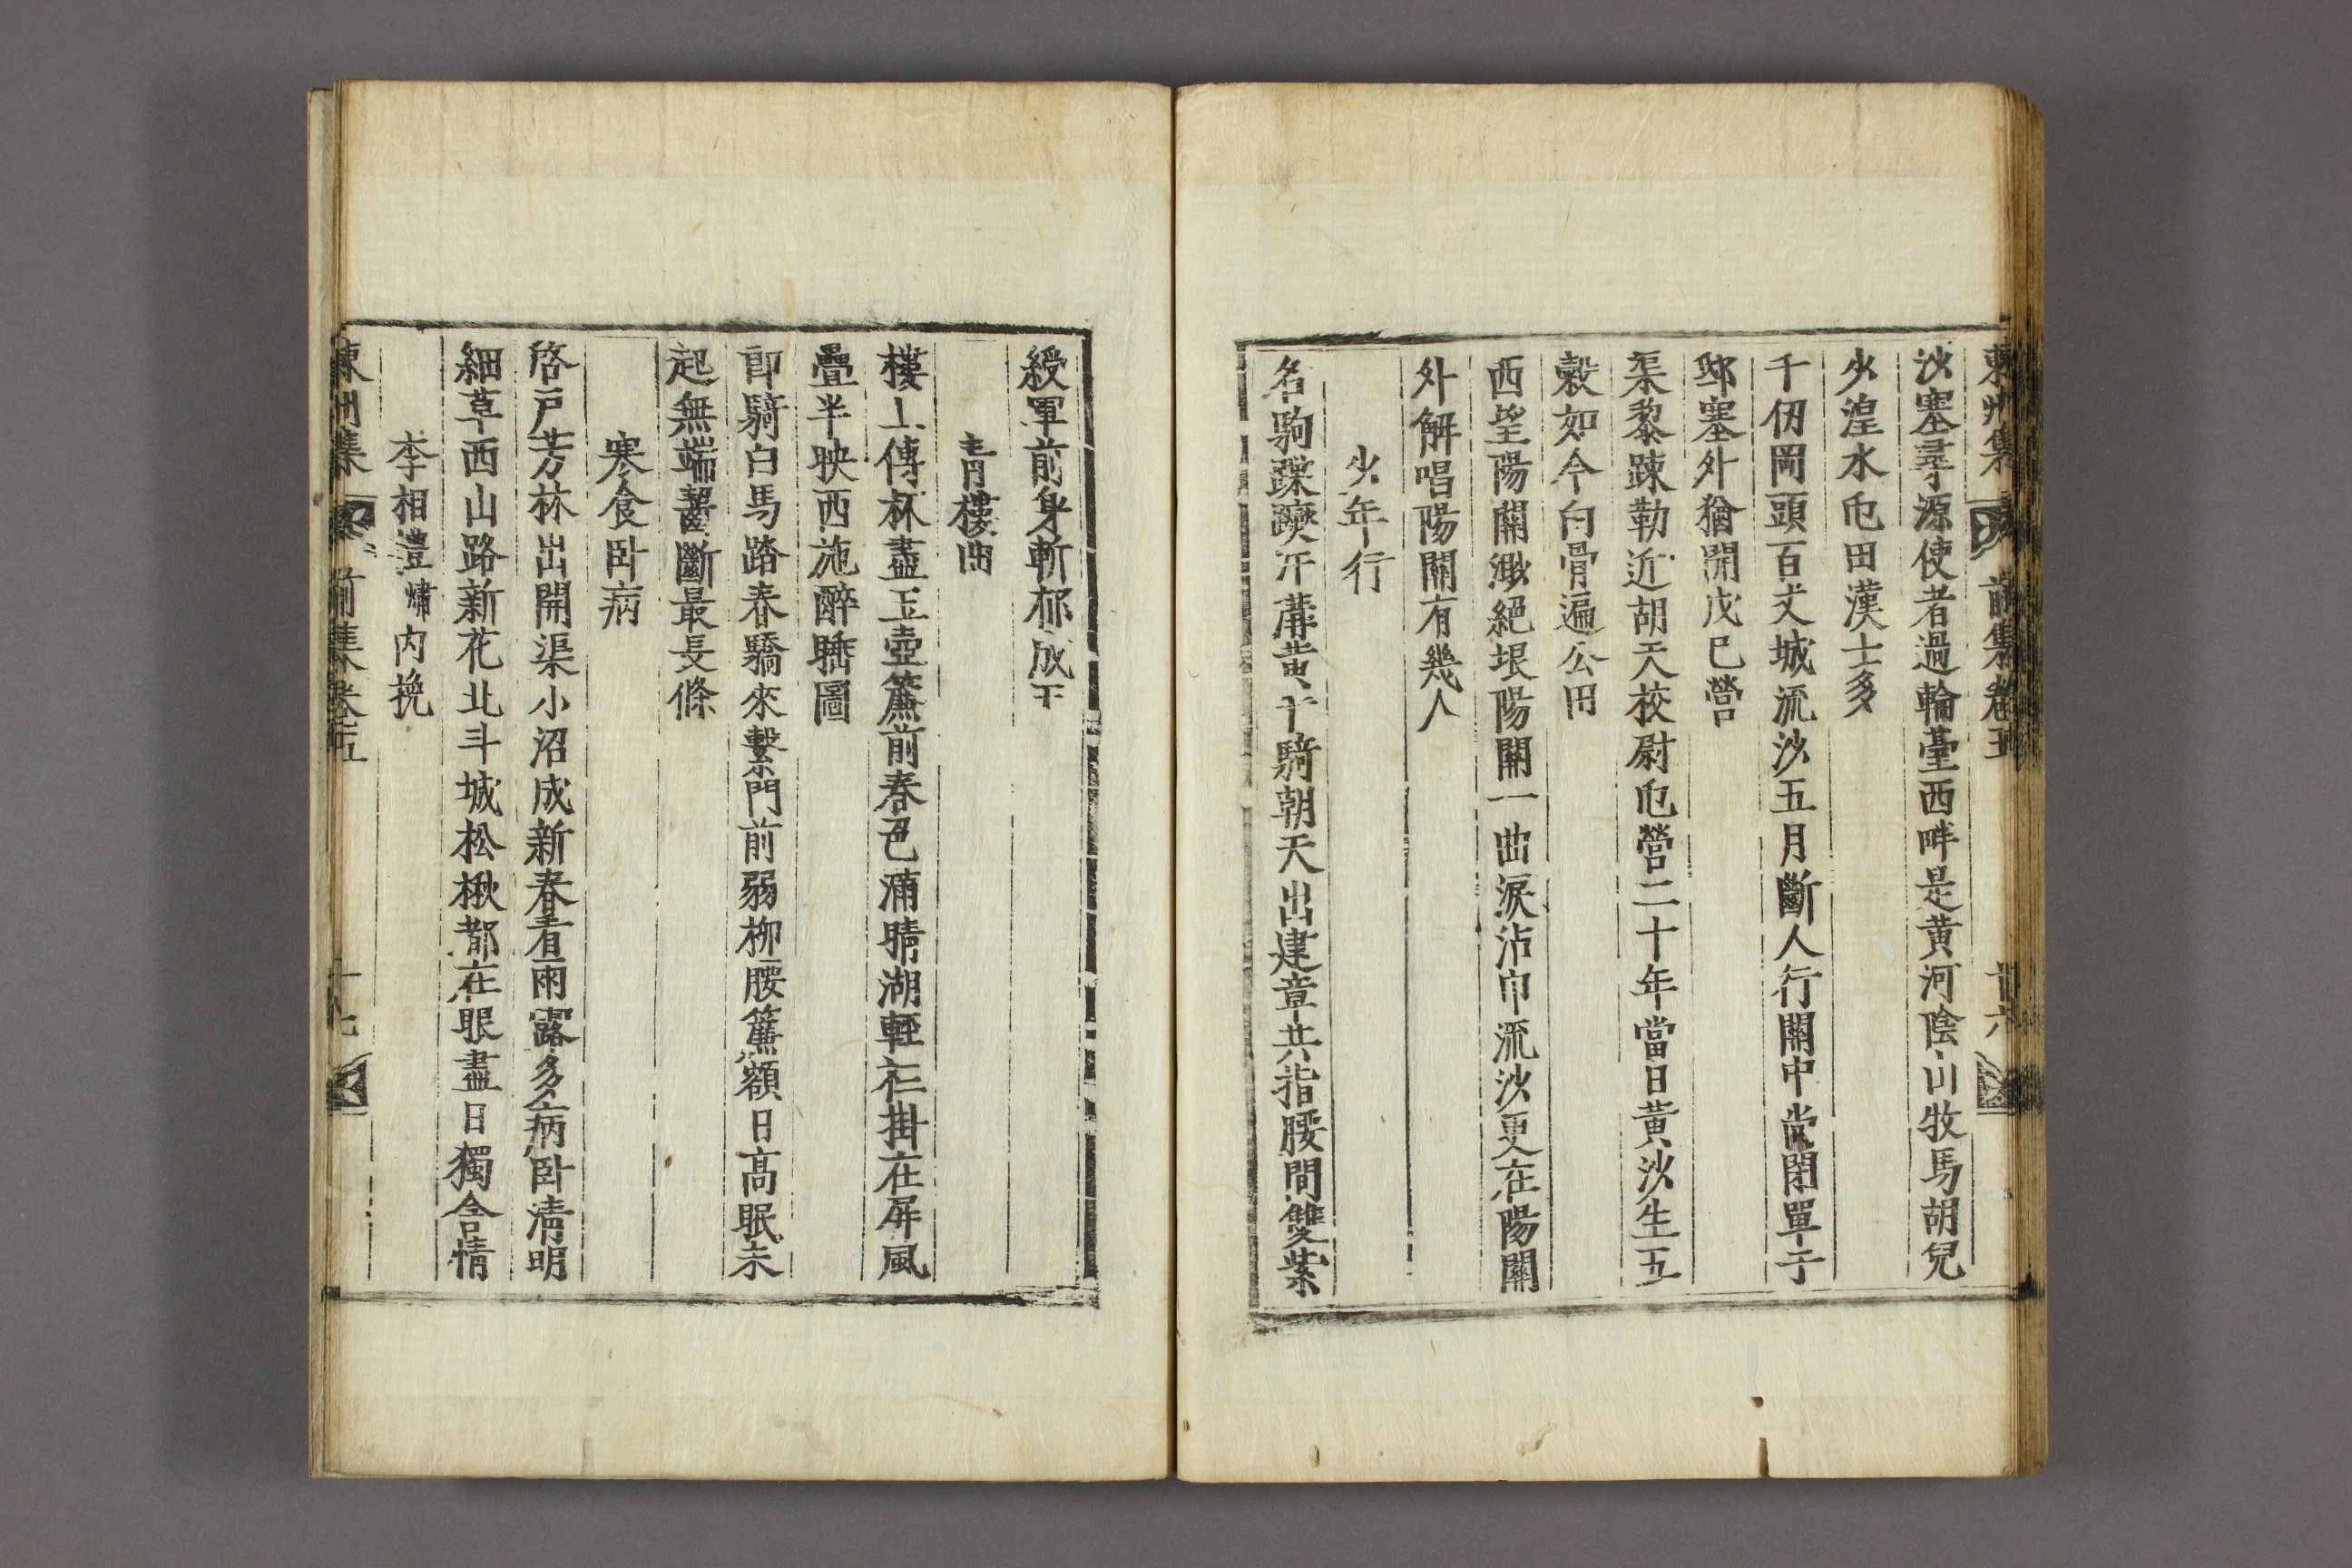 東州集 前集卷五 十六
沙塞尋源使者過輪臺西畔是黃河陰山牧馬胡兒
少湟水屯田漢士多
千仞岡頭百丈城流沙五月斷人行關中尚閉單于
邸塞外猶開戊己營
渠黎踈勒近胡天校尉屯營二十年當日黃沙生五
穀如今白骨遍公田
西望陽關渺絕垠陽關一曲淚沾巾流沙更在陽關
外解唱陽關有幾人
少年行
名駒蹀躞汗溝黃十騎朝天出建章共指腰間雙紫
綬軍前身斬郅成王
青樓曲
樓上傳杯盡玉壺簾前春色滿晴湖輕衫掛在屏風
疊半映西施醉睡圖
郎騎白馬踏春驕來繫門前弱柳腰簾額日高眠未
起無端齧斷最長條
寒食卧病
啓戶芳林出開渠小沼成新春看雨露多病卧清明
細草西山路新花北斗城松楸都在眼盡日獨含情
李相禮 內挽
東州集 前集卷五 十七